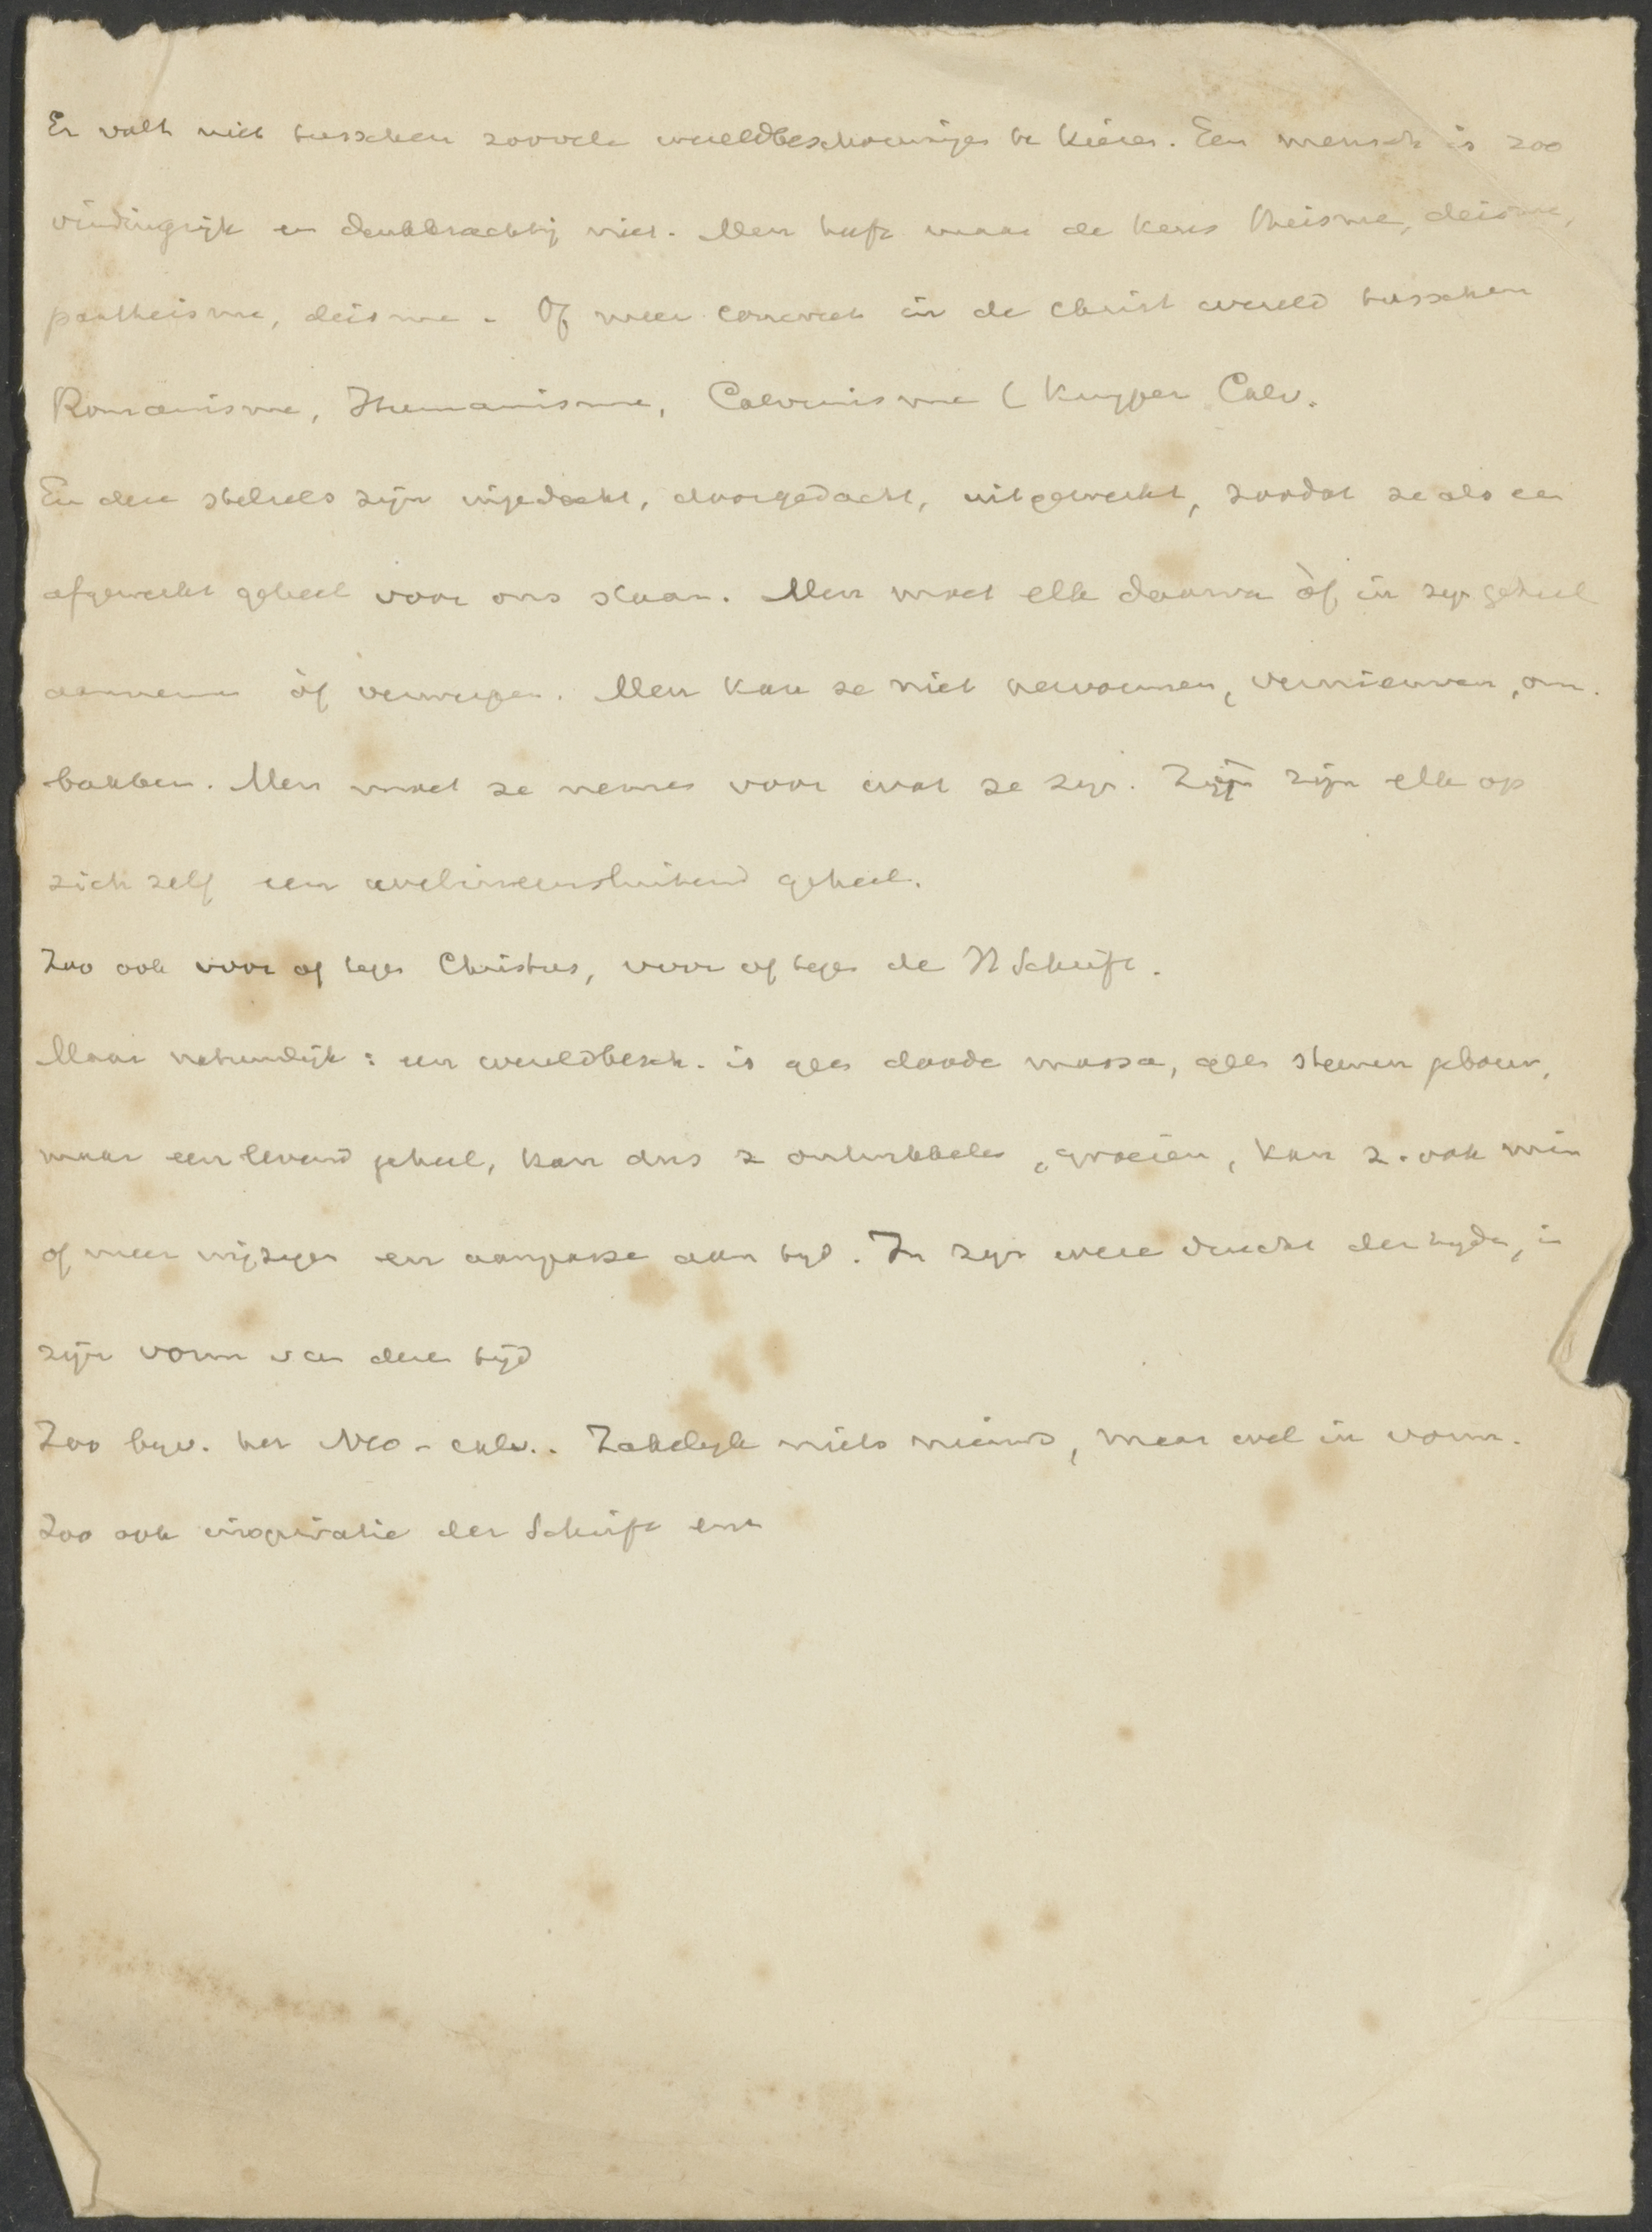 Er valt niet tusschen zooveele wereldbeschouwingen te kiezen. Een mensch is zoo
vindingrijk en denkkrachtig niet. Men heeft maar de keus theisme, deisme,
pantheisme, deisme. Of meer concreet in de christ wereld tusschen
Romanisme, Humanisme, Calvinisme (Kuyper Calv.
En deze stelsels zijn ingedacht, doorgedacht, uitgewerkt, zoodat ze als een
afgewerkt geheel voor ons staan. Men moet elk daarvan òf in zijn geheel
aannemen òf verwerpen. Men kan ze niet hervormen, vernieuwen, om-
bakken. Men moet ze nemen voor wat ze zijn. Zijn zijn elk op
zich zelf een welineensluitend geheel.
Zoo ook voor of tegen Christus, voor of tegen de H Schrift.
Maar natuurlijk: een wereldbesch. is geen doode massa, geen steenen gebouw,
maar een levend geheel, kan dus z ontwikkelen, groeien, kan z. ook min
of meer wijzigen en aanpassen aan tijd. In zijn der tijden, in
zijn vorm van dezen tijd
Zoo bijv. het Neo-calv.. Zakelijk niets nieuws, maar wel in vorm.
Zoo ook inspiratie der Schrift enz